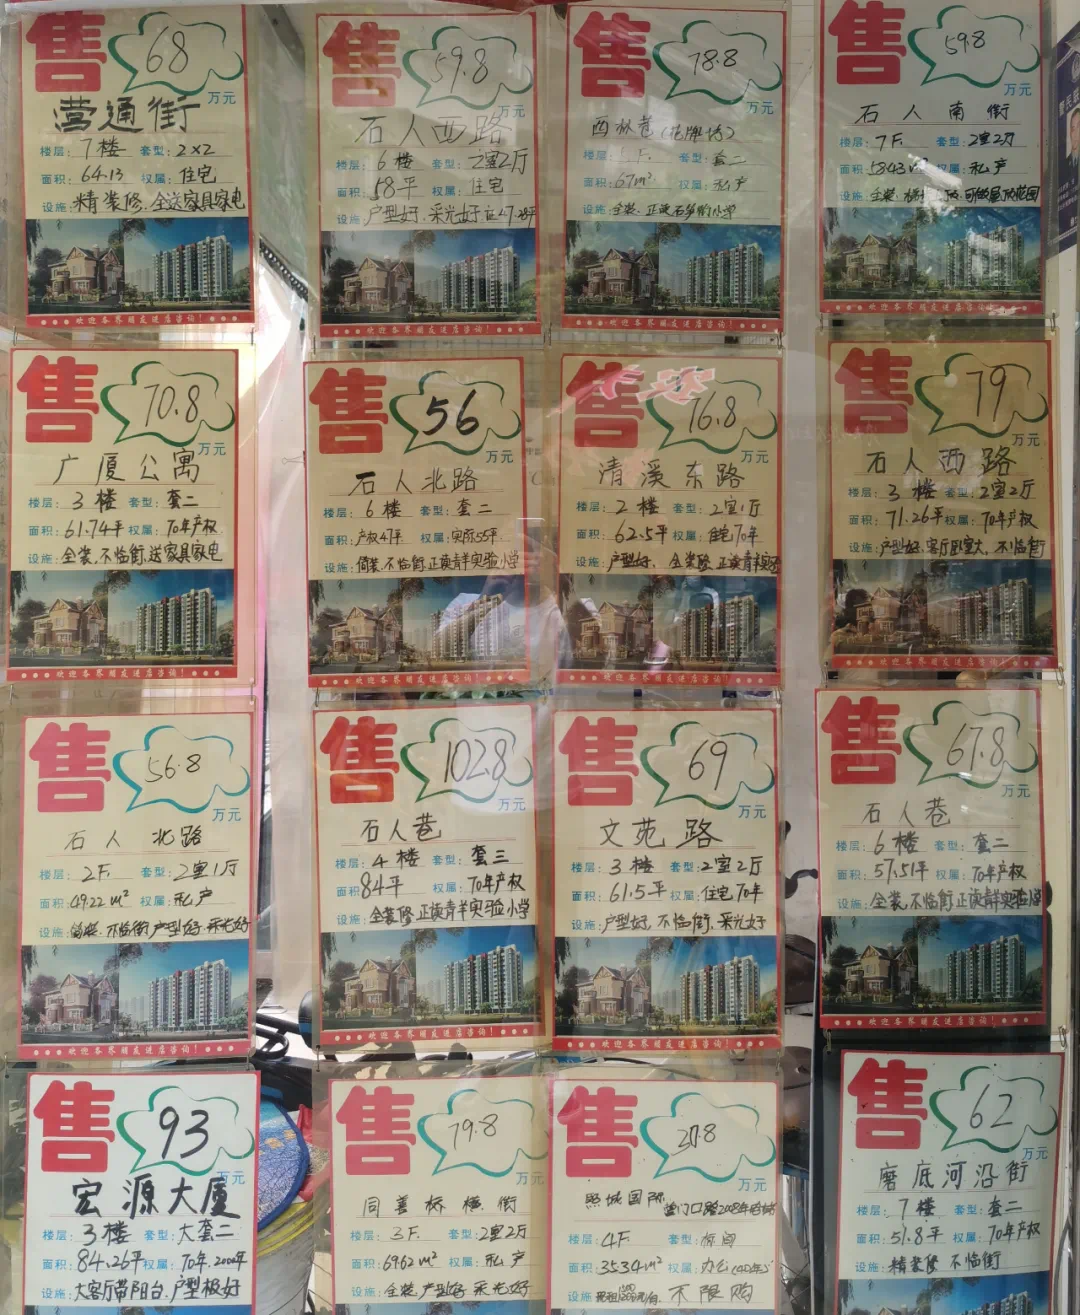 售 68 万元
营通街
楼层: 7楼 套型: 2×2
面积: 64.13 权属: 住宅
设施: 精装修、全送家具家电
欢迎各界朋友进店咨询!
售 59.8 万元
石人西路
楼层: 6楼 套型: 2室2厅
面积: 58平 权属: 住宅
设施: 户型好、采光好
欢迎各界朋友进店咨询!
售 78.8 万元
西林巷(花牌坊)
楼层: F. 套型: 套二
面积: 67m² 权属: 私产
设施: 全装、正读石笋街小学
欢迎各界朋友进店咨询!
售 59.8 万元
石人南街
楼层: 7F. 套型: 2室2厅
面积: 58.43 m² 权属: 私产
设施: 全装、
欢迎各界朋友进店咨询!
售 70.8 万元
广厦公寓
楼层: 3楼 套型: 套二
面积: 61.74平 权属: 70年产权
设施: 全装、不临街、送家具家电
欢迎各界朋友进店咨询!
售 56 万元
石人北路
楼层: 6楼 套型: 套二
面积: 产权47平 权属: 实际55平
设施: 简装、不临街、正读青羊实验小学
欢迎各界朋友进店咨询!
售 76.8 万元
清溪东路
楼层: 2楼 套型: 2室1厅
面积: 62.5平 权属: 住宅70年
设施: 户型好、全装修、正读青羊实验
欢迎各界朋友进店咨询!
售 79 万元
石人西路
楼层: 3楼 套型: 2室2厅
面积: 71.26平 权属: 70年产权
设施: 户型好、客厅卧室大、不临街
欢迎各界朋友进店咨询!
售 56.8 万元
石人北路
楼层: 2F. 套型: 2室1厅
面积: 49.22 m² 权属: 私产
设施: 简装、不临街、户型好、采光好
欢迎各界朋友进店咨询!
售 102.8 万元
石人巷
楼层: 4楼 套型: 套三
面积: 84平 权属: 70年产权
设施: 全装修、正读青羊实验小学
欢迎各界朋友进店咨询!
售 69 万元
文苑路
楼层: 3楼 套型: 2室2厅
面积: 61.5平 权属: 住宅70年
设施: 户型好、不临街、采光好
欢迎各界朋友进店咨询!
售 67.8 万元
石人巷
楼层: 6楼 套型: 套二
面积: 57.51平 权属: 70年产权
设施: 全装、不临街、正读青羊实验小学
欢迎各界朋友进店咨询!
售 93 万元
宏源大厦
楼层: 3楼 套型: 大套二
面积: 84.26平 权属: 70年、2004年
设施: 大客厅带阳台、户型极好
售 79.8 万元
同善桥横街
楼层: 3F. 套型: 2室2厅
面积: 69.62 m² 权属: 私产
设施: 全装、户型好、采光好
售 27.8 万元
熙城国际
楼层: 4F 套型:
面积: 35.34m² 权属: 办公(40年)
设施: 不限购
售 62 万元
磨底河沿街
楼层: 7楼 套型: 套二
面积: 51.8平 权属: 70年产权
设施: 精装修 不临街